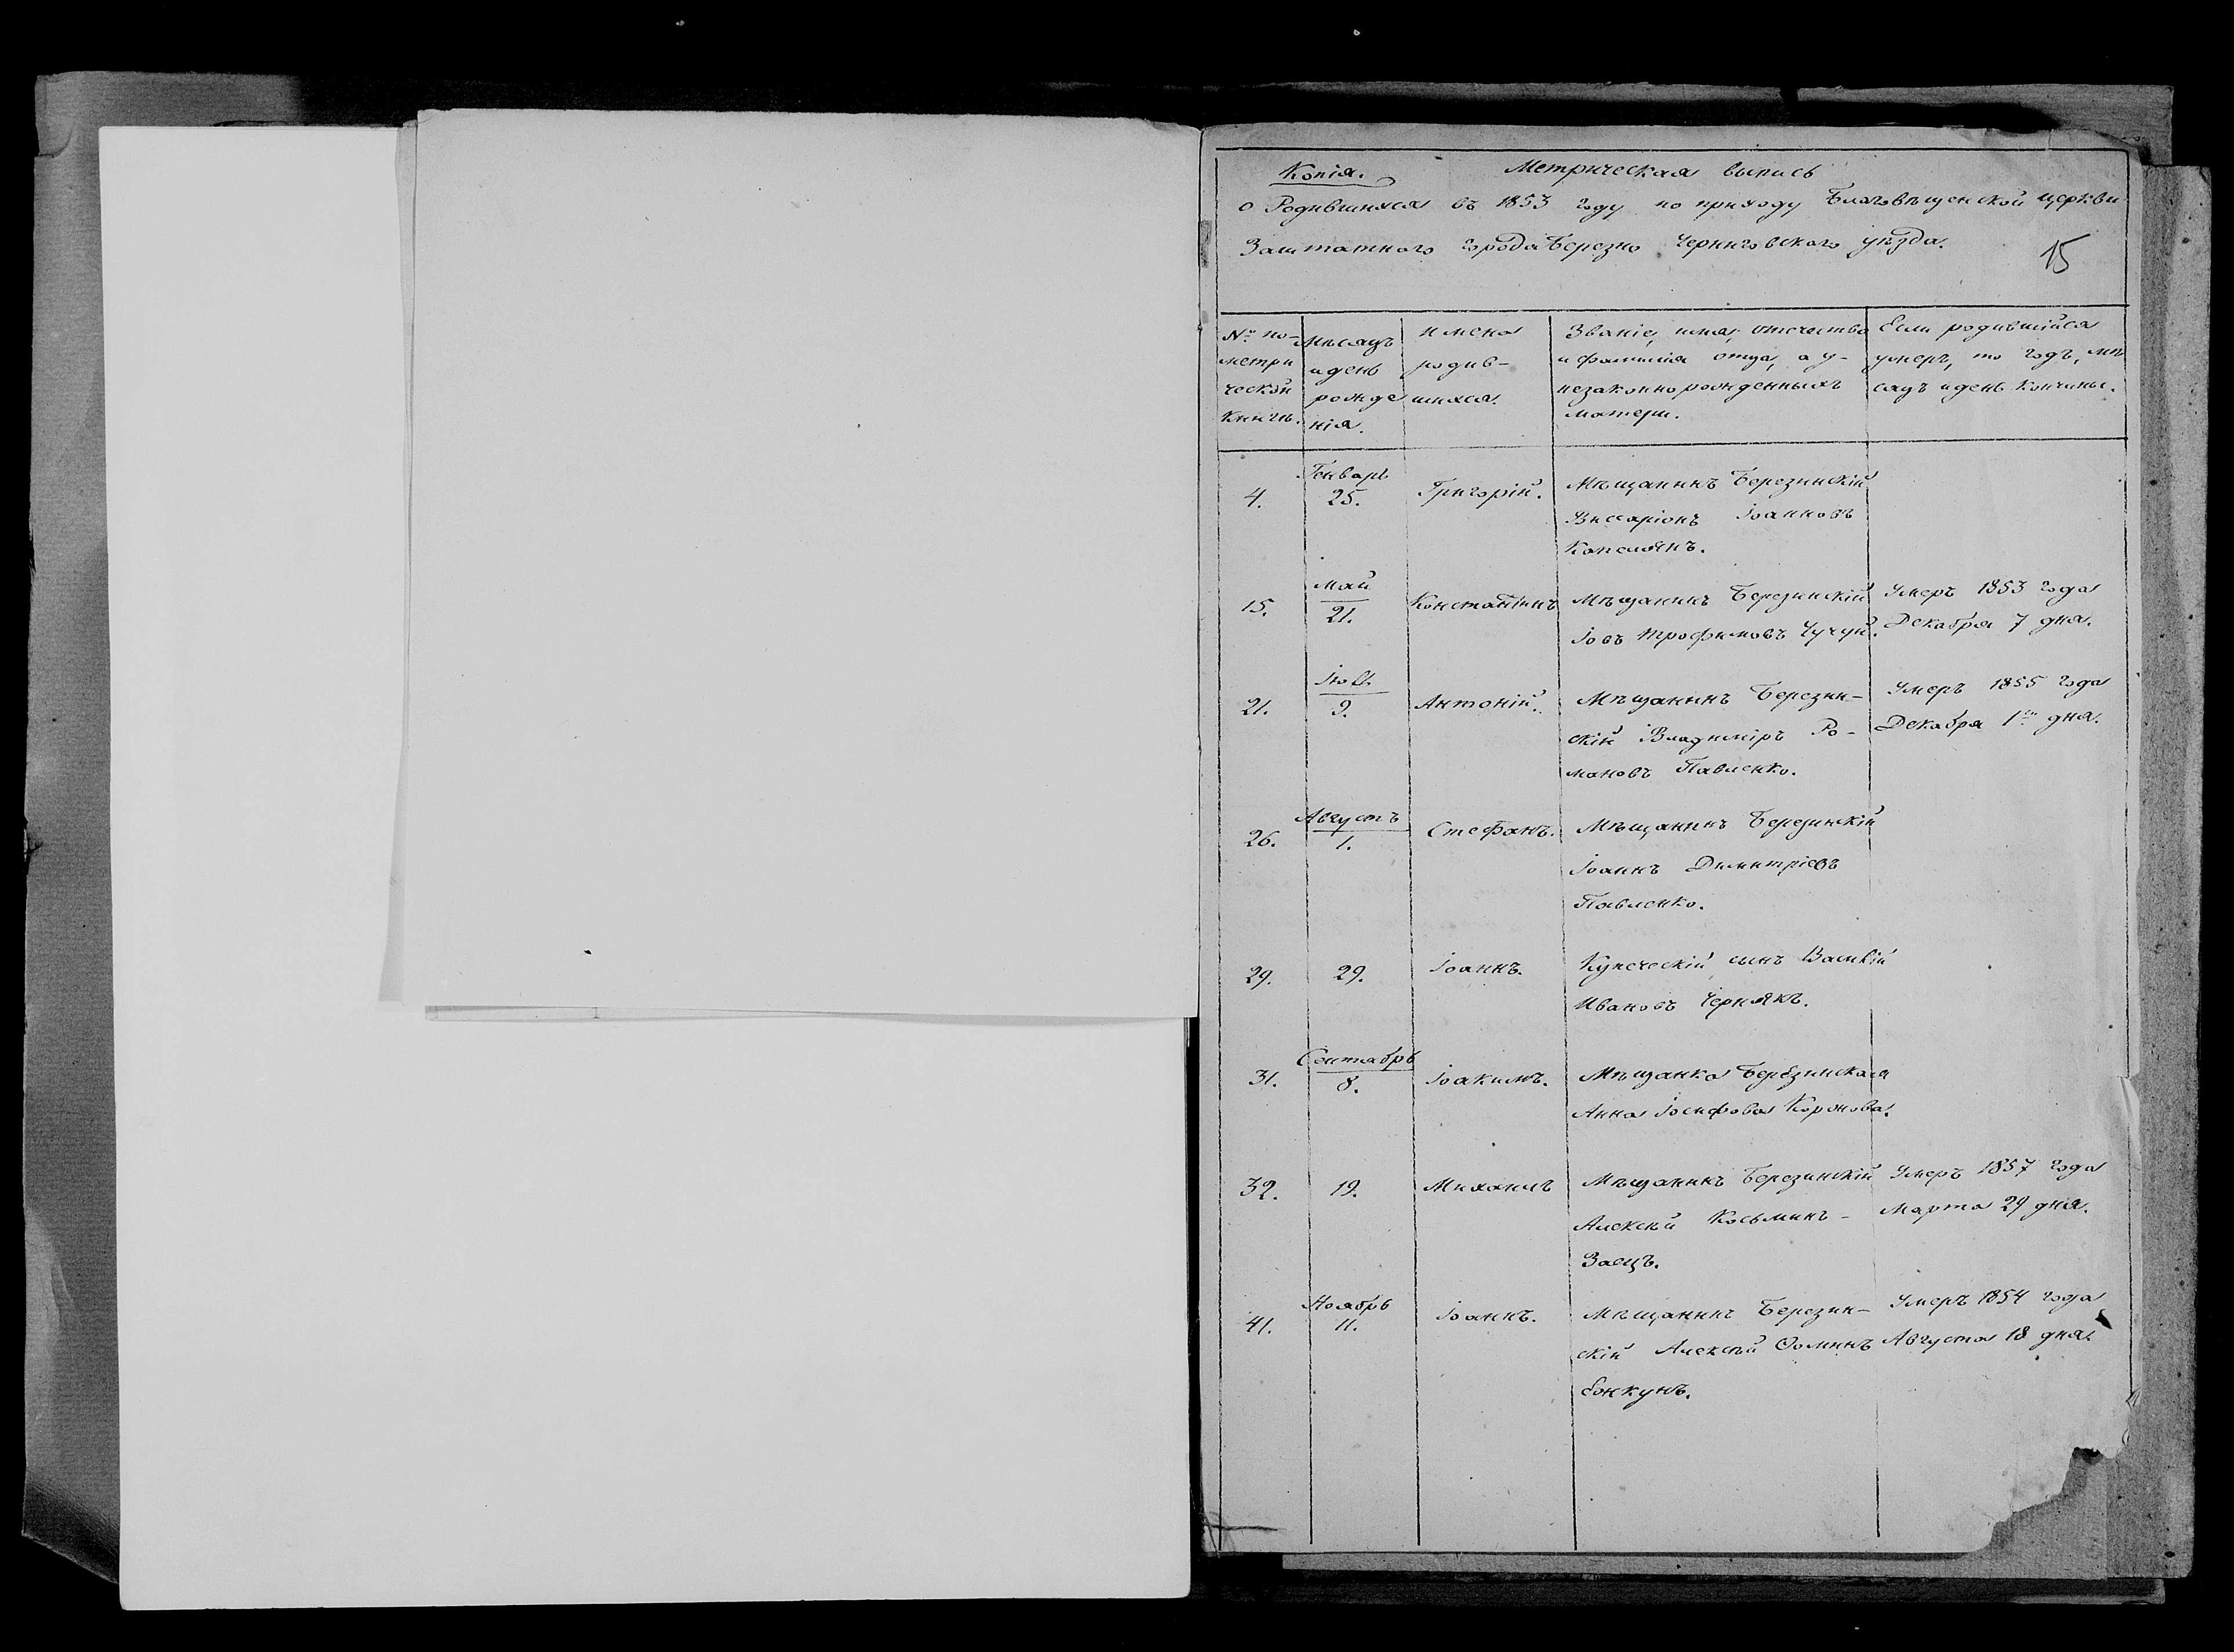 Копія. Метрическая выпись
о Родившихся въ 1853 году по приходу Благовѣщенской церкви
Заштатнаго города Березно Черниговскаго уѣзда.
15
№ по-
метри
ческой
книгѣ.
Мѣсяцъ
и день
рожде
нія.
имена
родив-
шихся.
Званіе, имя, отечество
и фамилія отца, а у-
незаконнорожденныхъ
матери.
Если родившійся
умеръ, то годъ, мѣ
сяцъ и день кончины.
Генварь
4. 25. Григорій. Мѣщанинъ Березинскій
Виссаріонъ Іоанновъ
Май
15. 21. Константинъ Мѣщанинъ Березинскій Умеръ 1853 года
Іовъ Трофимовъ Чучуй. Декабря 7 дня.
Іюль
21. 9. Антоній. Мѣщанинъ Березин- Умеръ 1855 года
скій Владиміръ Ро- Декабря 1го дня.
мановъ Павленко.
Августъ
26. 1. Стефанъ. Мѣщанинъ Березинскій
Іоаннъ Димитріевъ
Павленко.
29. 29. Іоаннъ. Купеческій сынъ Василій
Ивановъ Чернякъ.
Сентябрь
31. 8. Іоакимъ. Мѣщанка Березинская
Анна Іосифова Коржова.
32. 19. Михаилъ Мѣщанинъ Березинскій Умеръ 1857 года
Алексѣй Косьминъ - Марта 29 дня.
Заецъ.
Ноябрь
41. 11. Іоаннъ. Мѣщанинъ Березин- Умеръ 1854 года
скій Алексѣй Ѳоминъ Августа 18 дня.
Ежкунъ.